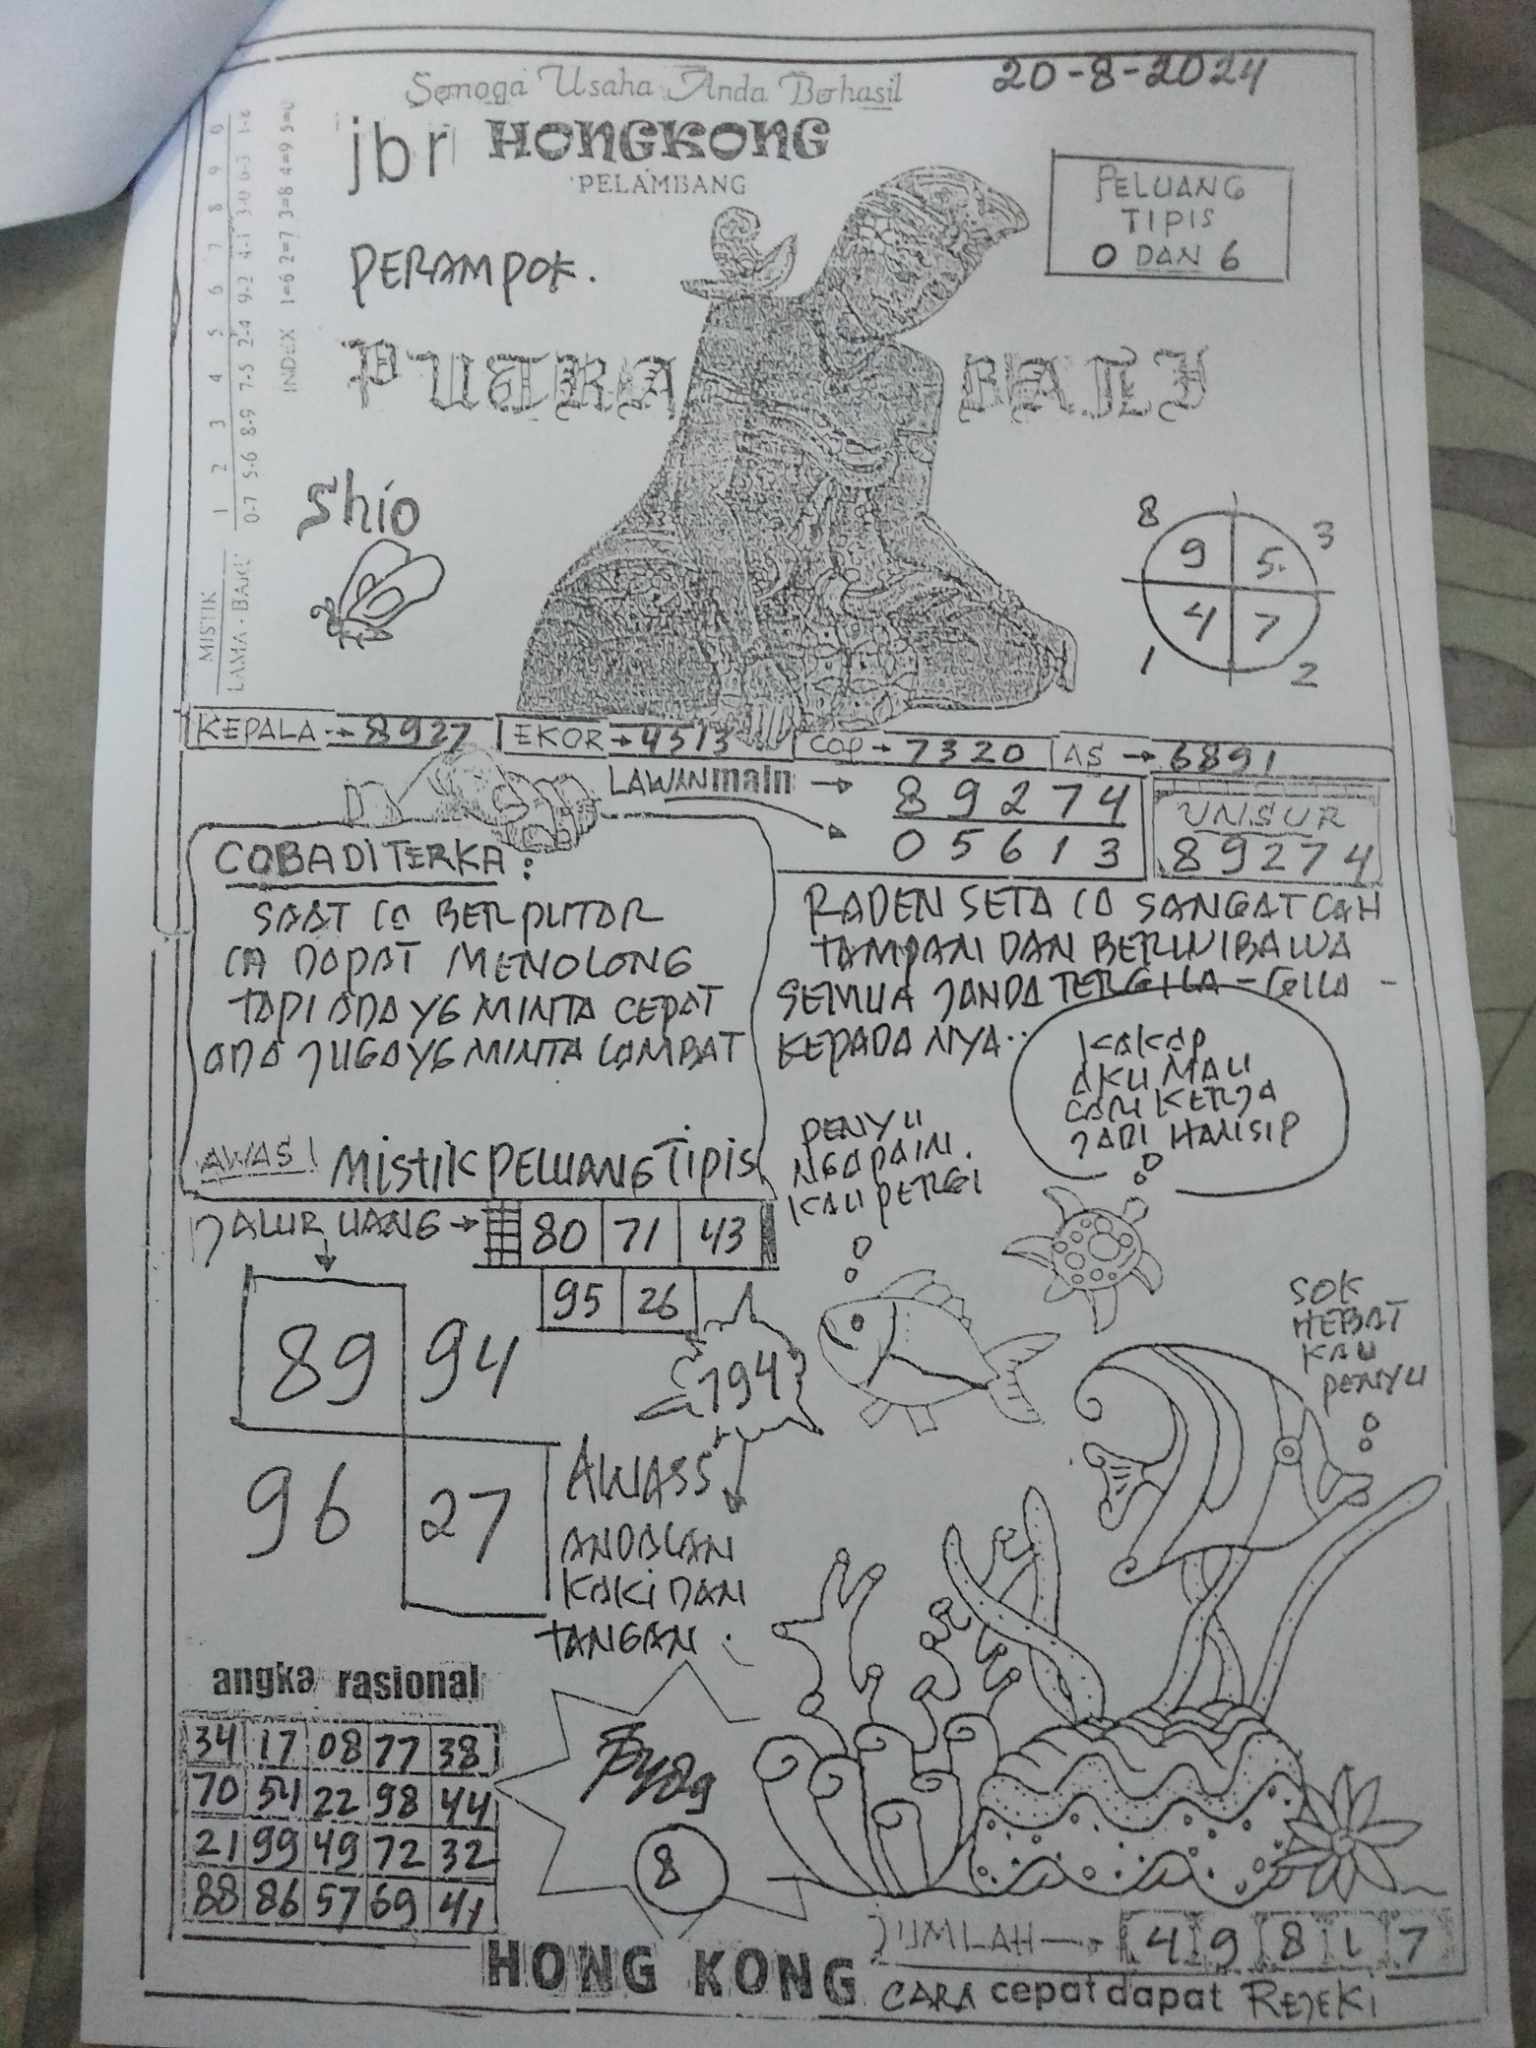 Semoga Usaha Anda Berhasil
20-8-2024
jbr HONGKONG
PELAMBANG
PELUANG
TIPIS
0 DAN 6
PERAMPOK.
PUTRA BALI
Shio
MISTIK
1 2 3 4 5 6 7 8 9 0
LAMA - BARU
0-7 5-6 8-9 7-5 2-4 9-2 4-1 3-0 6-3 1-8
INDEX 1=6 2=7 3=8 4=9 5=0
8 3
9 5
4 7
1 2
KEPALA → 8927 EKOR → 4513 COP → 7320 AS → 6891
LAWAN main → 89274
05613
UNSUR
89274
COBA DI TERKA :
SAAT IA BERPUTAR
IA DAPAT MENOLONG
TAPI ADA YG MINTA CEPAT
ADA JUGA YG MINTA LAMBAT
RADEN SETA IA SANGATLAH
TAMPAN DAN BERWIBAWA
SEMUA JANDA TERGILA-GILA -
KEPADANYA..
KAKAP
AKU MAU
CARI KERJA
JADI HANSIP
PENYU
NGAPAIN
KAU PERGI
AWAS! MISTIK PELUANG TIPIS
JALUR UANG → 80 71 43
95 26
89 94
96 27
794
AWASS
ANDALAN
KAKI DAN
TANGAN.
SOK
HEBAT
KAU
PENYU
angka rasional
34 17 08 77 38
70 54 22 98 44
21 99 49 72 32
88 86 57 69 41
8
JUMLAH → 4 9 8 1 7
HONG KONG CARA cepat dapat REJEKI